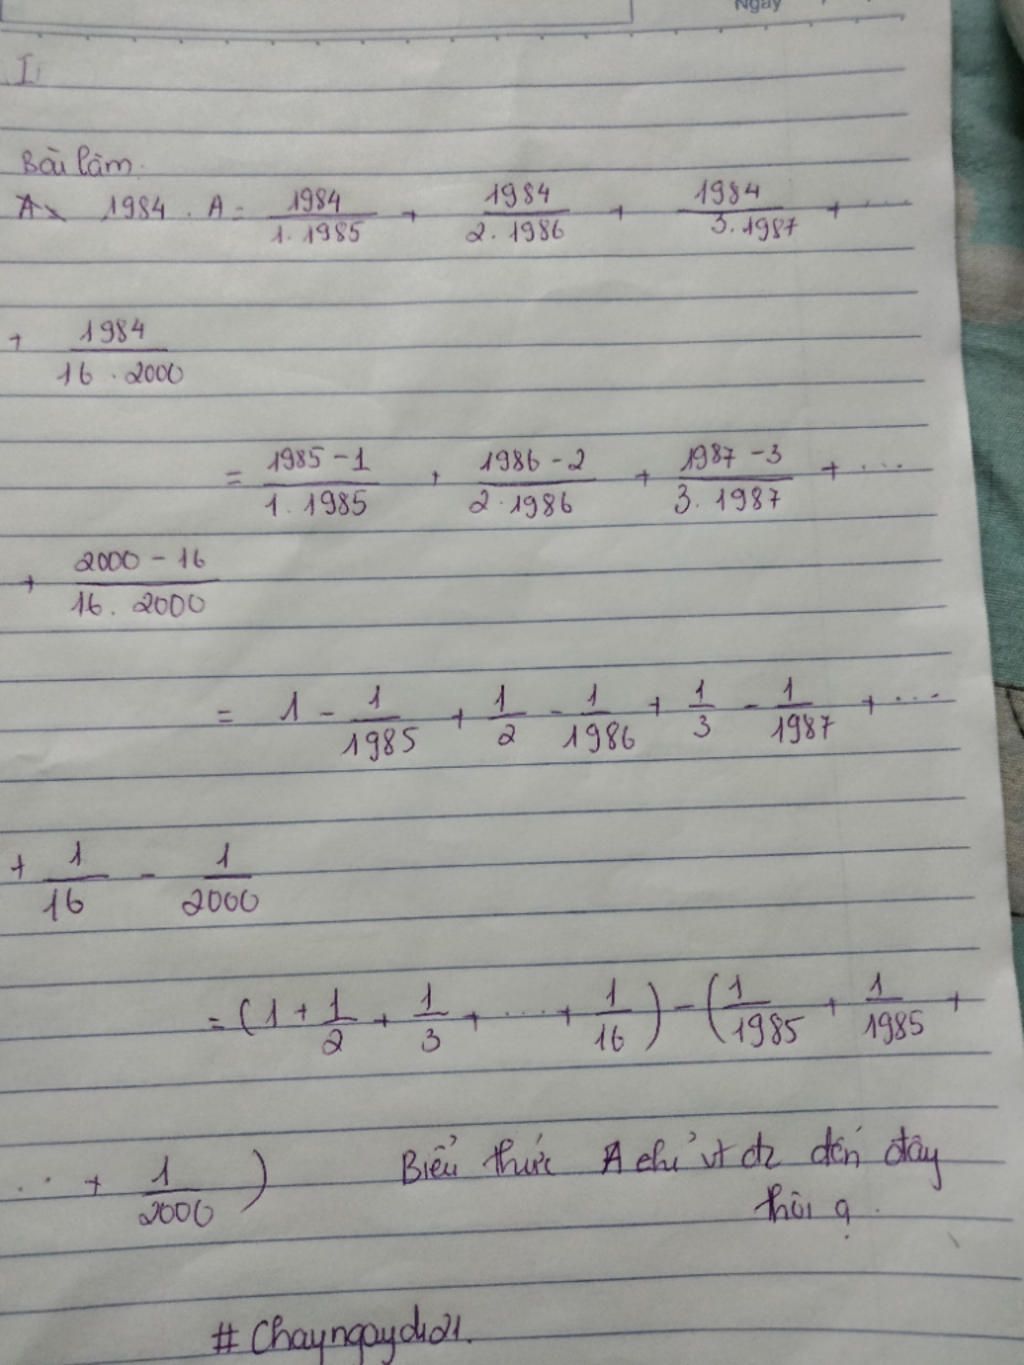 Ngày
I
Bài làm.
1984 . A = 1984/1.1985 + 1984/2.1986 + 1984/3.1987 + ....
+ 1984/16.2000
= 1985-1/1.1985 + 1986-2/2.1986 + 1987-3/3.1987 + ...
+ 2000-16/16.2000
= 1 - 1/1985 + 1/2 - 1/1986 + 1/3 - 1/1987 + ....
+ 1/16 - 1/2000
= (1 + 1/2 + 1/3 + .... + 1/16) - (1/1985 + 1/1985 +
.. + 1/2000) Biểu thức A chỉ vt đc đến đây
thôi ạ.
# Chayngaydi21.